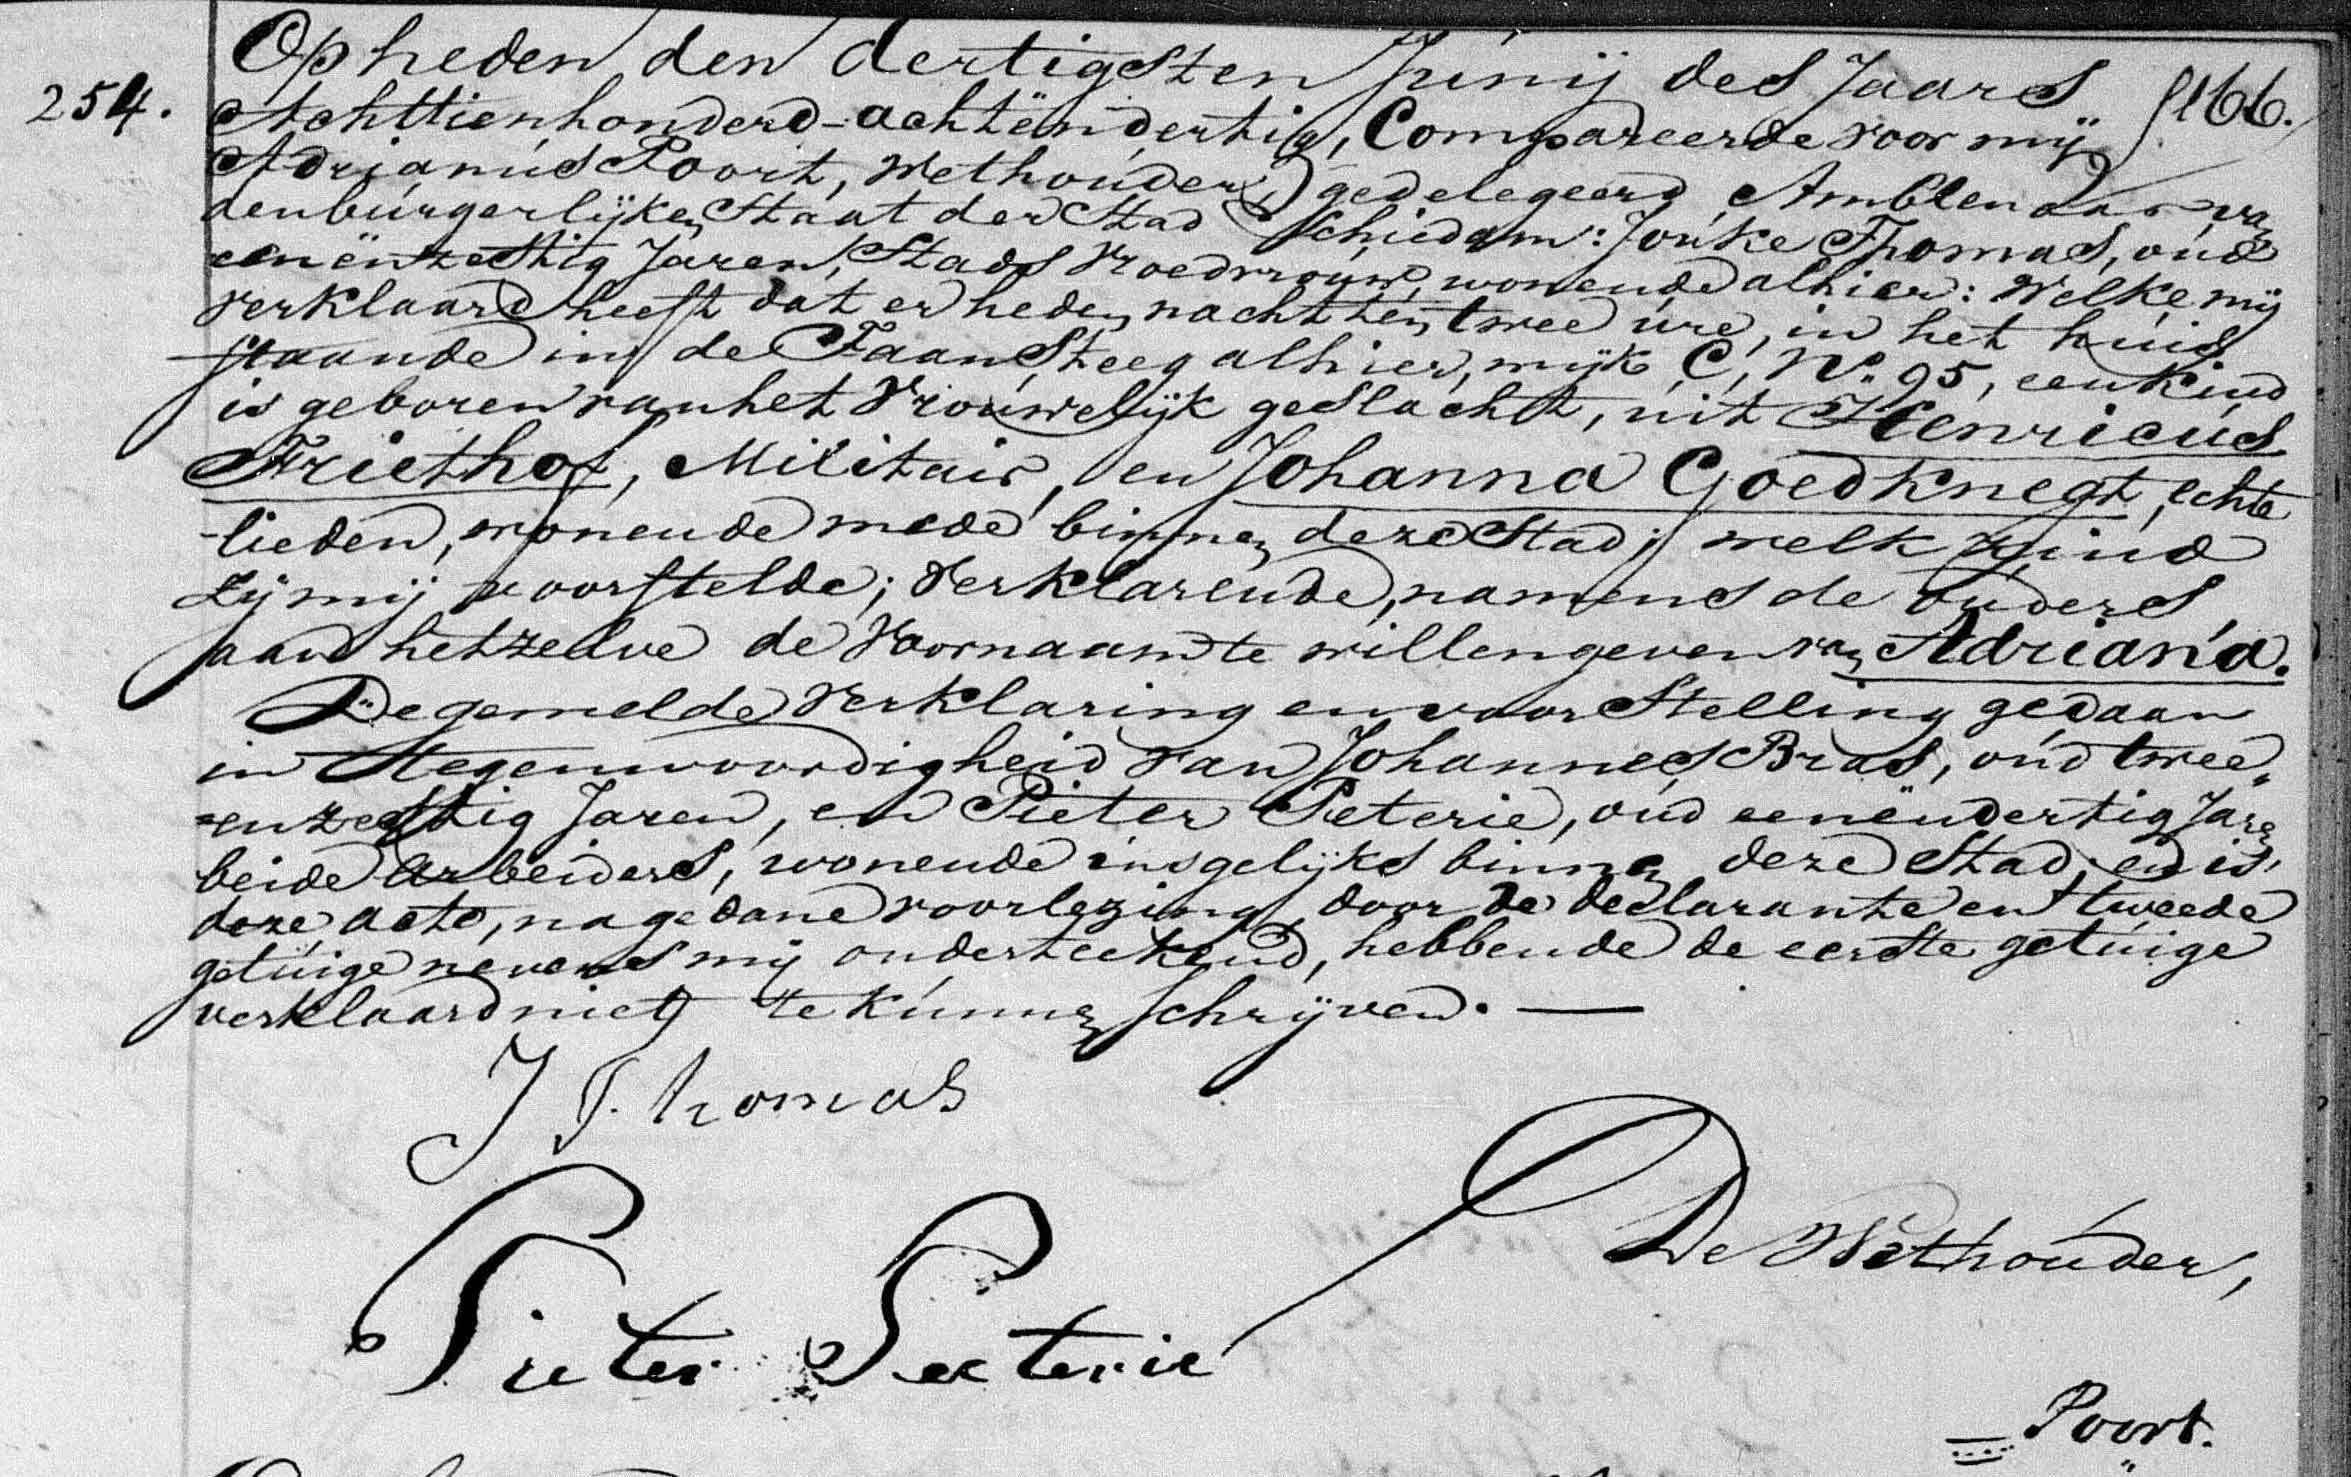 254.
Op heden den dertigsten Junij des Jaars
Achttienhonderd-achtëndertig, Compareerde voor mij
Adrianus Poort, Wethouder, gedelegeerd Ambtenaar van
den burgerlijken Staat der Stad Schiedam: Jouke Thomas, oud
eenënzestig Jaren, Stads Vroedvrouw, wonende alhier: Welke mij
verklaard heeft dat er heden nacht ten twee ure, in het huis
staande in de Faansteeg alhier, wijk C, No. 95, een kind
is geboren van het Vrouwelijk geslacht, uit Henricus
Friethof, Militair, en Johanna Goedknegt, echte
-lieden, wonende mede binnen deze Stad; welk kind
zij mij voorstelde; Verklarende, namens de ouders,
aan hetzelve de Voornaam te willen geven van Adriana.
De gemelde verklaring en voorstelling gedaan
in tegenwoordigheid van Johannes Bras, oud twee„
=enzestig Jaren, en Pieter Peterie, oud eenëndertig Jaren
beide Arbeiders, wonende insgelijks binnen deze Stad; en is,
deze acte, na gedane voorlezing, door de declarante en tweede
getuige nevens mij onderteekend, hebbende de eerste getuige
verklaard niet te kunnen schrijven. —
J Thomas
Pieter Peeterie
De Wethouder,
Poort.